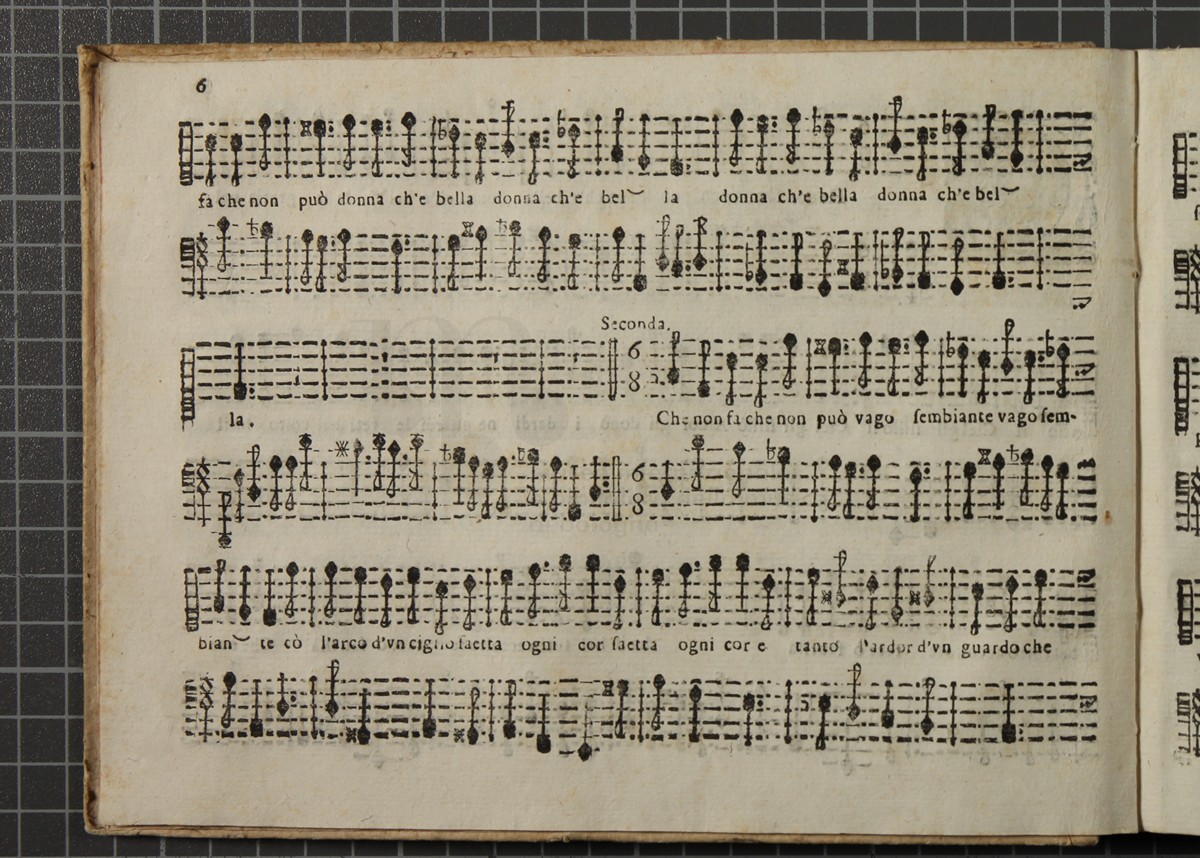 6
fa che non può donna ch'e bella donna ch'e bel la donna ch'e bella donna ch'e bel
Seconda.
6
8
la. Che non fa che non può vago sembiante vago sem-
6
8
bian te cò l'arco d'vn ciglio saetta ogni cor saetta ogni cor e tanto l'ardor d'vn guardo che